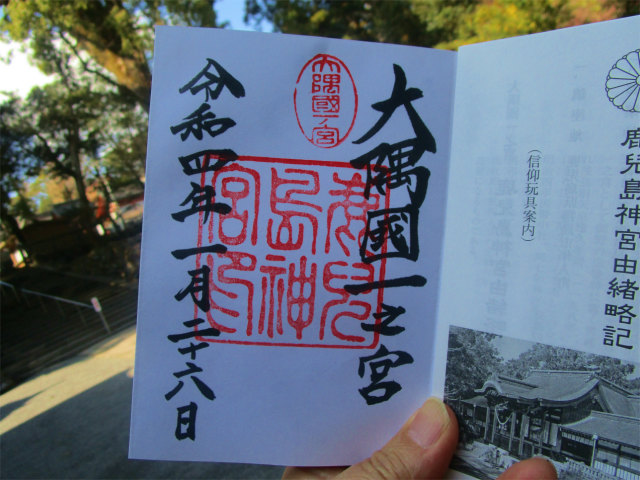 鹿兒島神宮由緒略記
(信仰玩具案内)
大隅國一之宮
大隅國一ノ宮
鹿兒島神宮印
令和四年一月二十六日